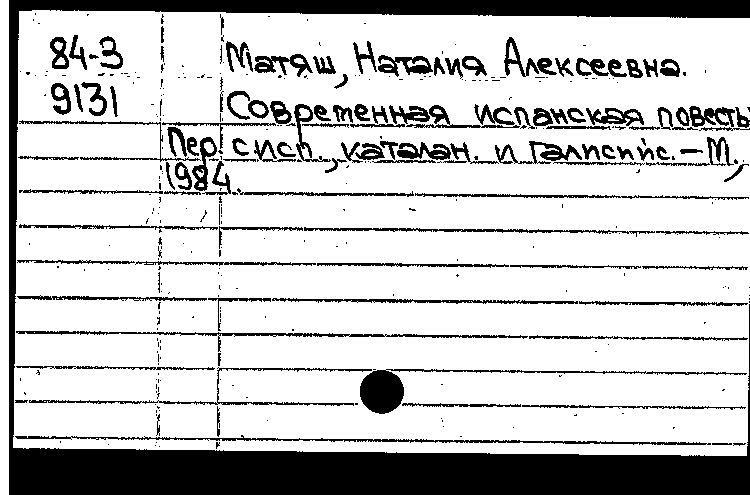 84-3 Матяш, Наталия Алексеевна.
9131 Современная испанская повесть
Пер. с исп., каталан. и галисийс. – М.,
1984.